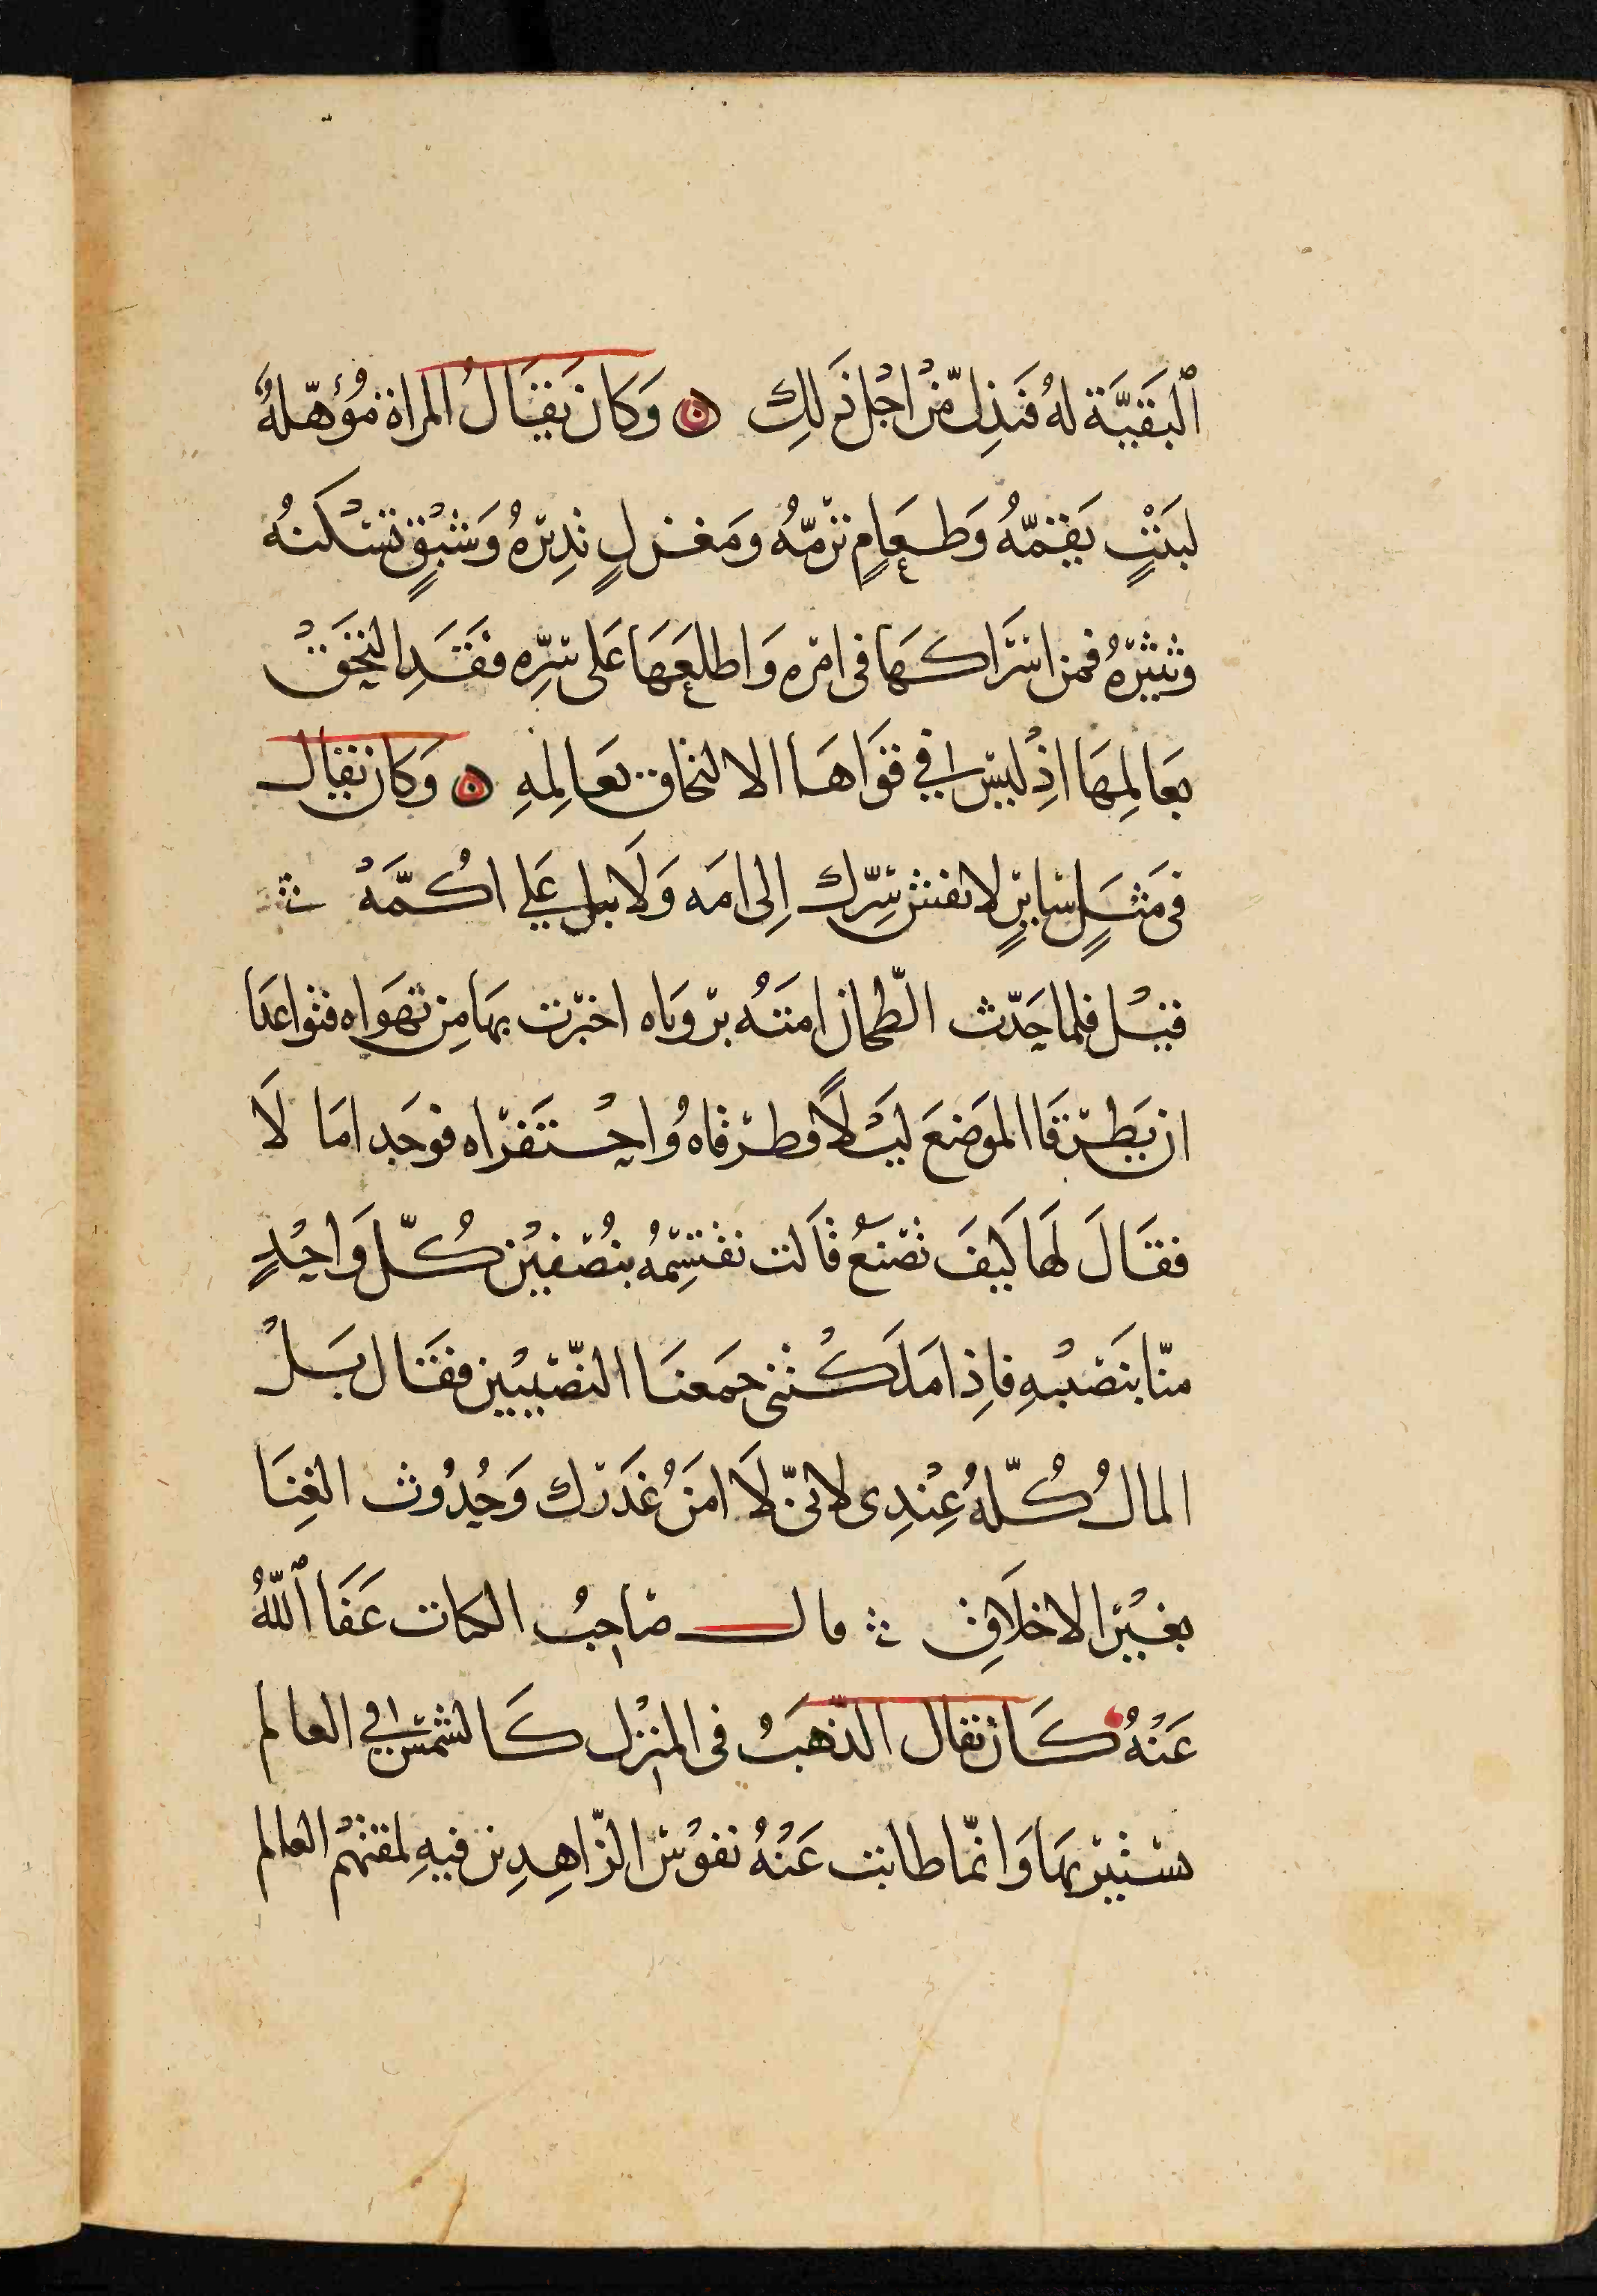 ٱلبَقيَّة لهُ فَنذِل مّنْ اجْل ذَلِك ۞ وَكان يقَال المراة مُؤهّلةٌ
لبَيْتٍ تقمّهُ وَطعَامٍ ترمّهُ ومَغزلٍ تدِيرهُ وَشبْقٍ تسْكنهُ
وتثيرهُ فمن اشرَاكهَا فى امره وَاطلعَهَا عَلى سرّه فقَدِ التحَقْ
بعَالمِهَا اذِ ليْس فى قوَاهَا الالتحاق بعَالمِهِ ۞ وَكان يقال
فى مَثلٍ سَايرٍ لا تفش سِرّك اِلى امَه وَلَا تبل عَلى اكُمَّهْ
قيْل فلما حَدّث الطّحان امَتهُ برويَاه اخبرت بها من تهوَاه فتواعدَا
ان يَطرقا الموضعَ ليْلًا فطرقاه وُاحْتفَراه فوجَدا مَا لَا
فقَالَ لهَا كيفَ نصْنعُ قالت نقتسِمهُ بنُصْفيْن كُلّ وَاحِدٍ
منّا بنَصْيبهِ فاِذا ملَكْتنى جمَعنَا النّصْيبيْن فقَال بَلْ
المالُ كُلّهُ عِنْدِى لانىّ لَا امَنُ غَدرك وَحُدُوث الغِنَا
يغيْر الاخلَاقِ ؞ قال صَاحبُ الكتاب عَفَا ٱللّهُ
عَنْهُ كَان يقال الذّهَبُ فى المنزل كَالشمْس فى العالم
يستنير بهَا وَانمّا طابت عَنْهُ نفوْس الزّاهِدِين فيهِ لمقتهْم العالم